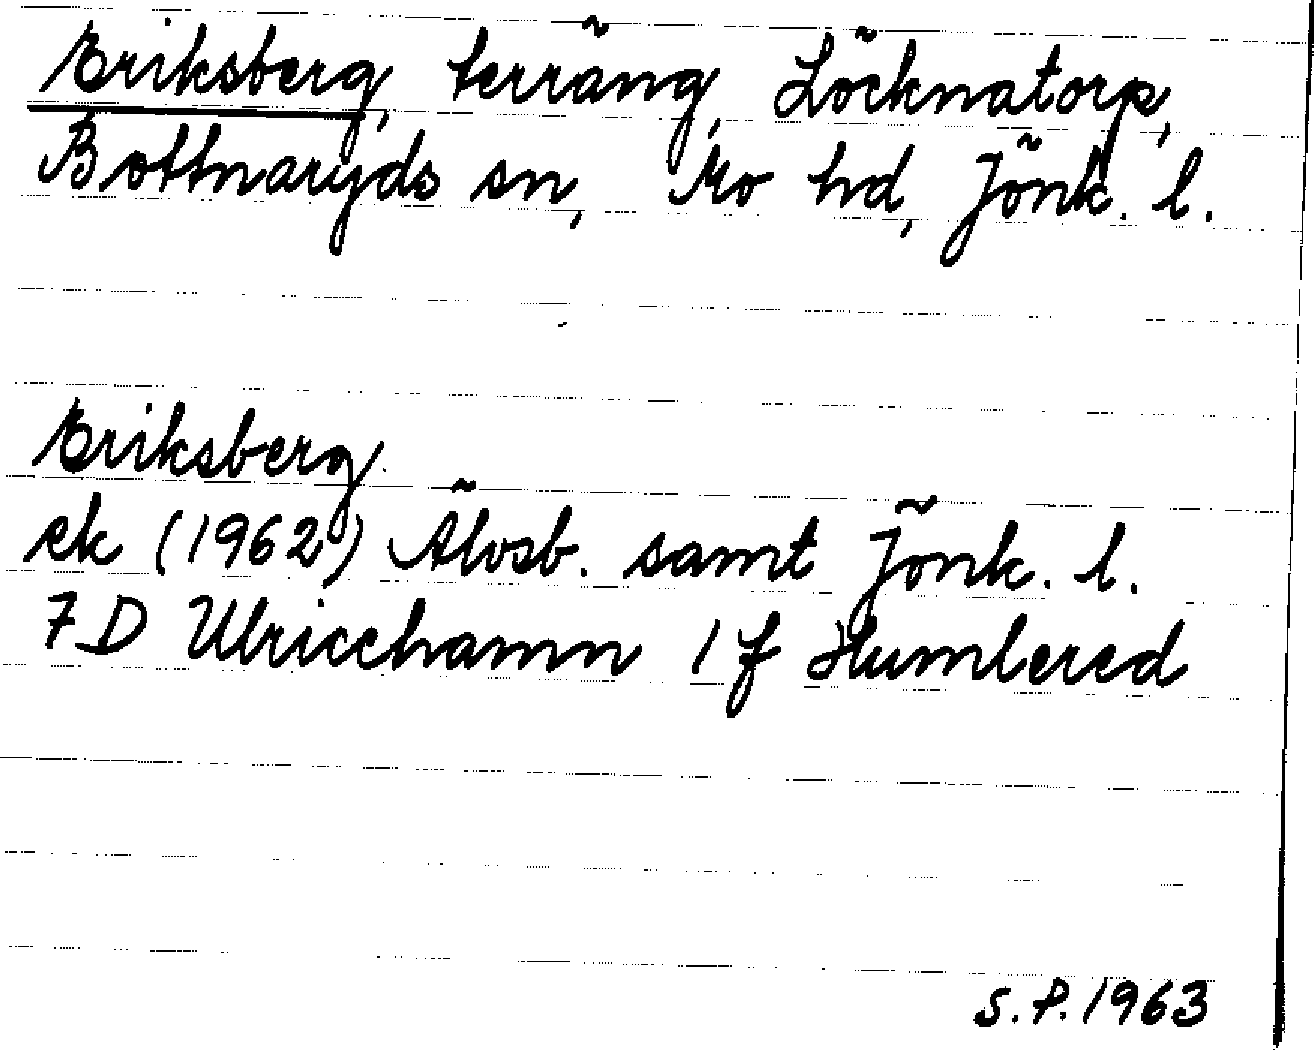 Eriksberg, terräng, Löcknatorp,
Bottnaryds sn, Mo hd, Jönk. l.
Eriksberg
ek (1962) Älvsb. samt Jönk. l.
7D Ulricehamn 1 f Humlered
S.P. 1963